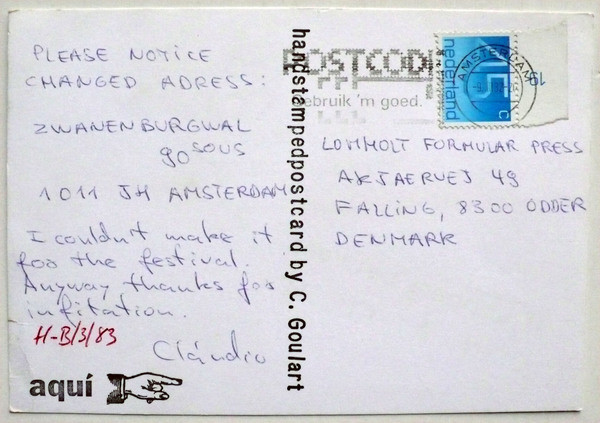 PLEASE NOTICE
CHANGED ADRESS:
ZWANENBURGWAL
90 SOUS
1011 JH AMSTERDAM
I couldn't make it
foo the festival.
Anyway thanks for
infitation.
H-B/3/83
Cláudio
aquí
handstampedpostcard by C. Goulart
POSTCODE
gebruik 'm goed.
AMSTERDAM
nederland
15 c
19
LOMHOLT FORMULAR PRESS
AKJAERVEJ 49
FALLING, 8300 ODDER
DENMARK